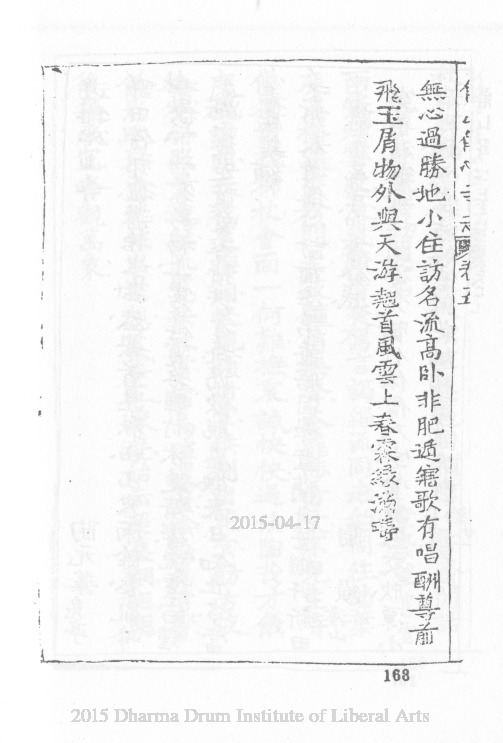 卷五
無心過勝地小住訪名流高卧非肥遁寤歌有唱酬尊前
飛玉屑物外與天游翹首風雲上春霖綠滿疇
2015-04-17
168
2015 Dharma Drum Institute of Liberal Arts